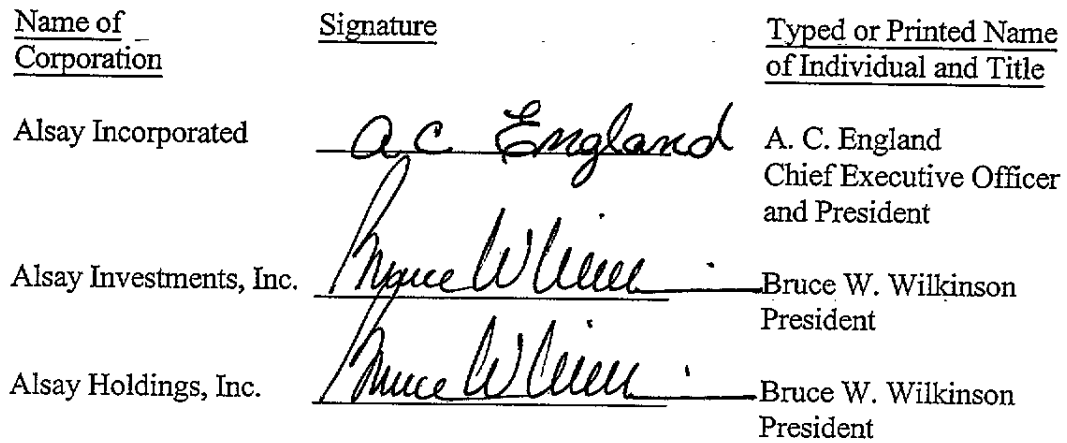 Name of Corporation
Signature
Typed or Printed Name of Individual and Title
Alsay Incorporated
a c England
A. C. England
Chief Executive Officer
and President
Alsay Investments, Inc.
Bruce W
Bruce W. Wilkinson
President
Alsay Holdings, Inc.
Bruce W
Bruce W. Wilkinson
President